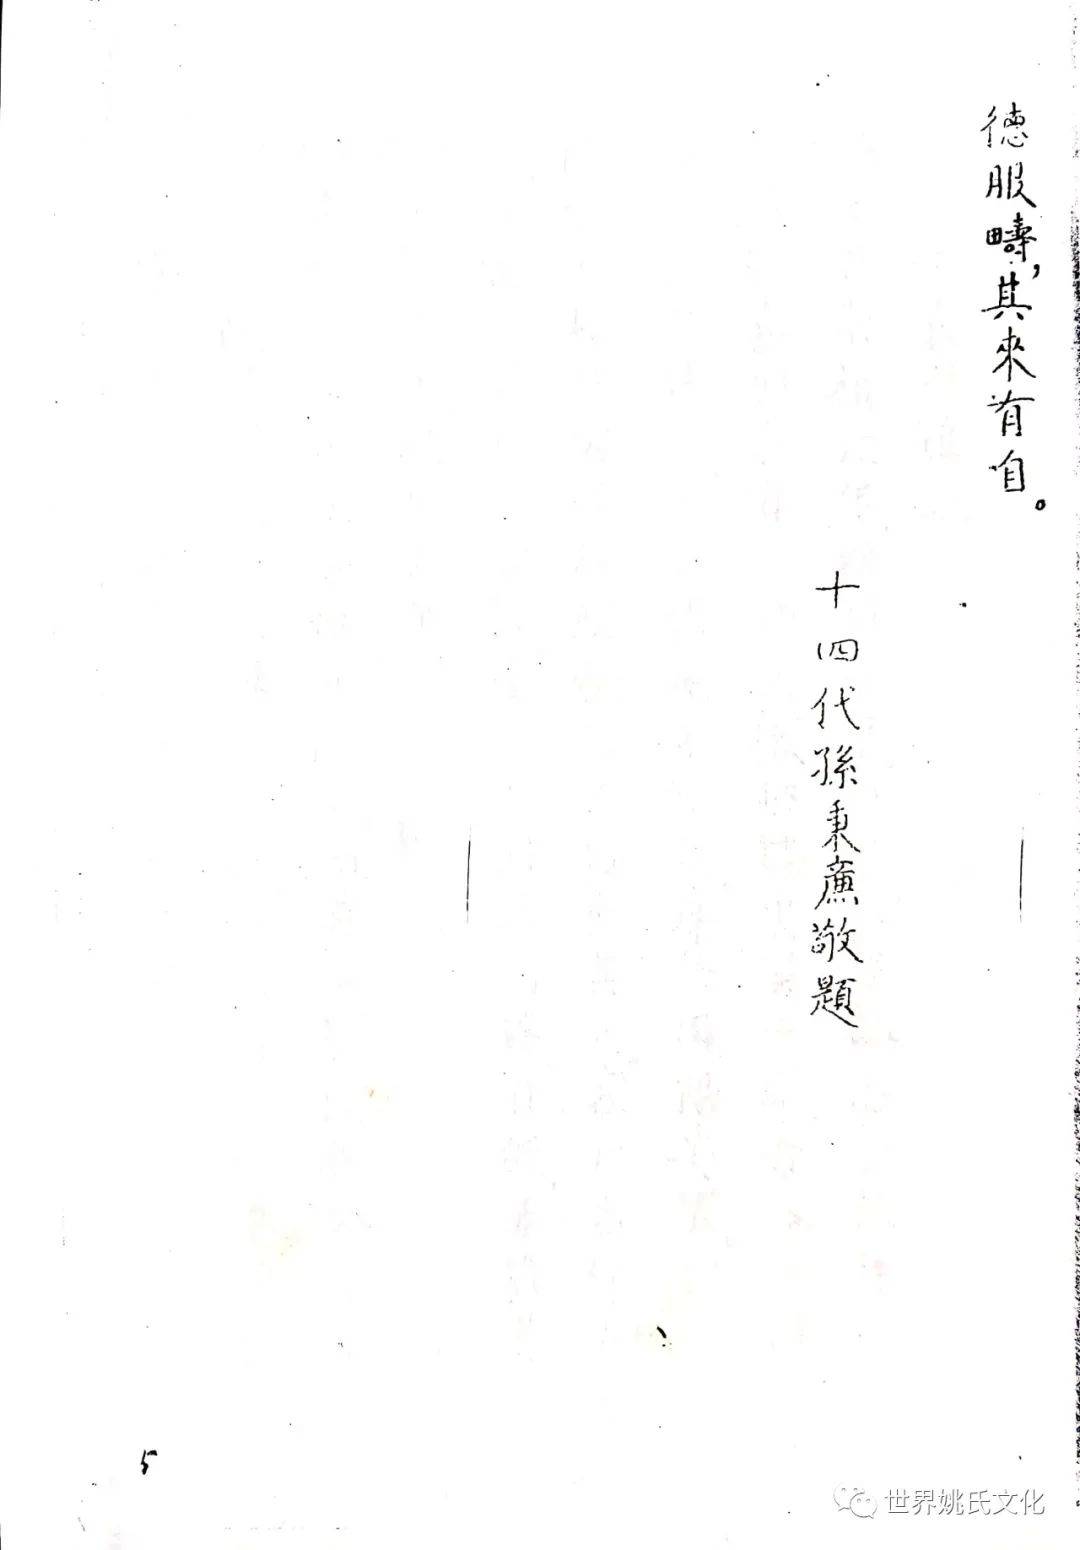 德服疇，其來有自。
十四代孫秉薦敬題
5
世界姚氏文化